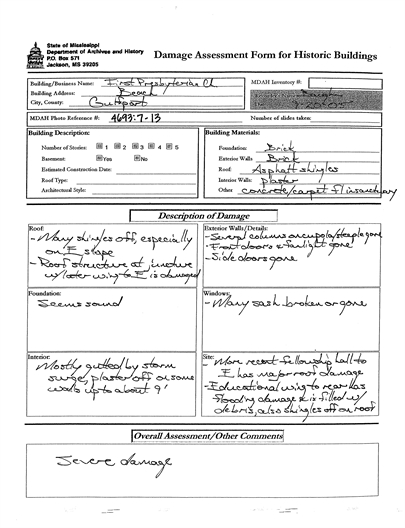 State of Mississippi
Department of Archives and History
P.O. Box 571
Jackson, MS 39205
Damage Assessment Form for Historic Buildings
Building/Business Name: First Presbyterian Ch
Building Address: Beach
City, County: Gulfport
MDAH Inventory #:
MDAH Photo Reference #: 4693:7-13
Number of slides taken:
Building Description:
Number of Stories: 1 2 3 4 5
Basement: Yes No
Estimated Construction Date:
Roof Type:
Architectural Style:
Building Materials:
Foundation: Brick
Exterior Walls Brick
Roof: Asphalt shingles
Interior Walls: plaster
Other concrete/carpet fl in sanctuary
Description of Damage
Roof:
- Many shingles off, especially
on E slope
- Roof structure at juncture
w/later wing to E is damaged
Exterior Walls/Details:
- Several columns on cupola/steeple gone
- Front doors & fanlight gone
- Side doors gone
Foundation:
Seems sound
Windows:
- Many sash broken or gone
Interior:
Mostly gutted by storm
surge, plaster off on some
walls up to about 9'
Site:
- More recent fellowship hall to
E has major roof damage
- Educational wing to rear has
flooding damage & is filled w/
debris, also shingles off on roof
Overall Assessment/Other Comments
Severe damage